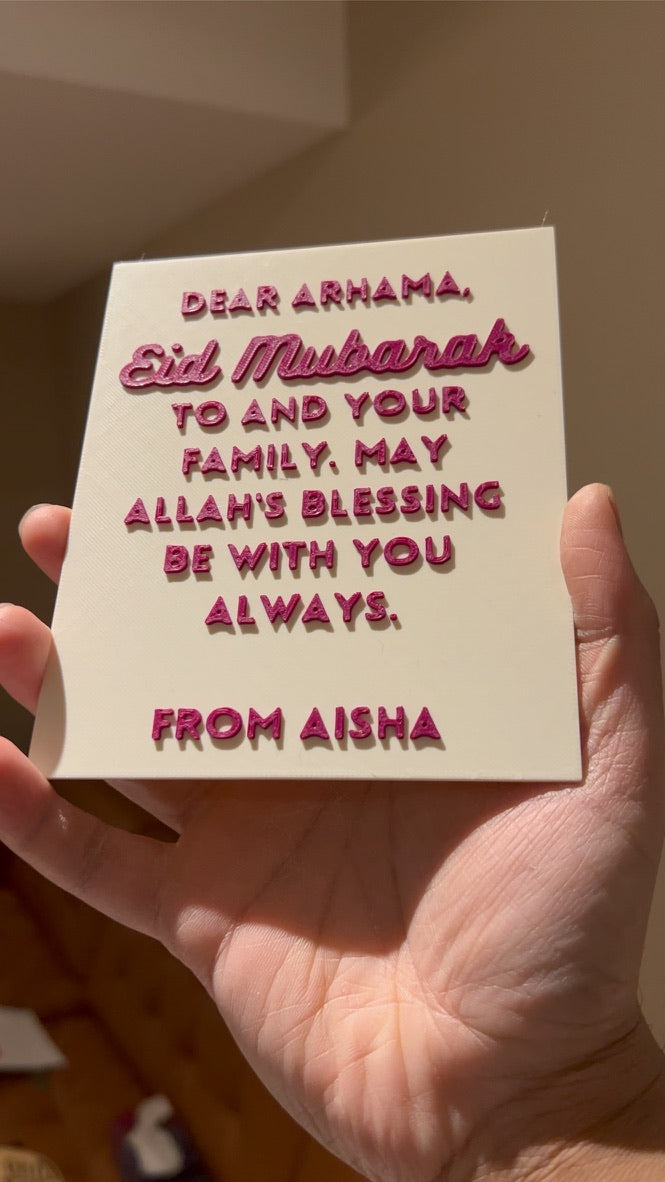 DEAR ARHAMA,
Eid Mubarak
TO AND YOUR
FAMILY. MAY
ALLAH'S BLESSING
BE WITH YOU
ALWAYS.
FROM AISHA